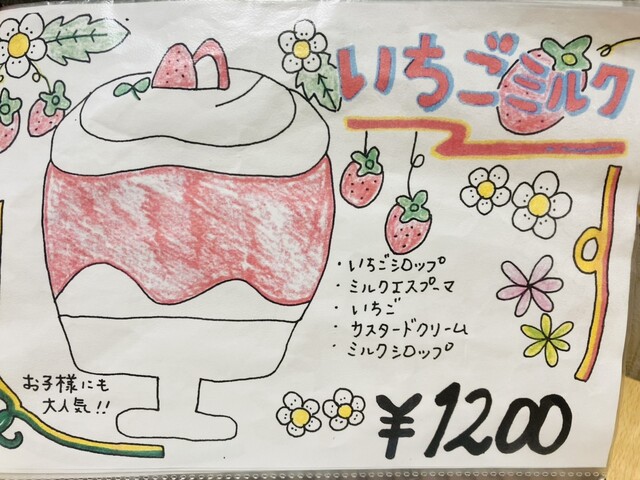 いちごミルク
・いちごシロップ
・ミルクエスプーマ
・いちご
・カスタードクリーム
・ミルクシロップ
お子様にも
大人気!!
¥1200